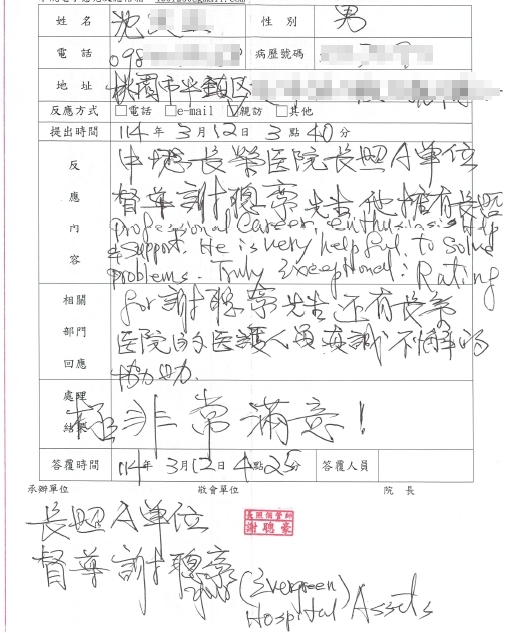 姓 名 沈 性 別 男
電 話 098 病歷號碼
地 址 桃園市平鎮區
反應方式 □電話 □e-mail ☑親訪 □其他
提出時間 114 年 3 月 12 日 3 點 40 分
反應內容
申悤長榮医院長照A單位
督導謝聰豪先生他擁有長照
professional Career, enthusiasis Help
& support. He is very helpful to Solve
problems. Truly Exceptional: Rating
相關部門回應
for 謝聰豪先生还有長榮
医院的医護人員真誠不懈的
協助.
處理結果
非常滿意!
答覆時間 114年 3月12日 4點25分 答覆人員
承辦單位 敬會單位 院 長
長照A單位
長照個管師
謝聰豪
督導謝聰豪
(Evergreen)
Hospital Assets